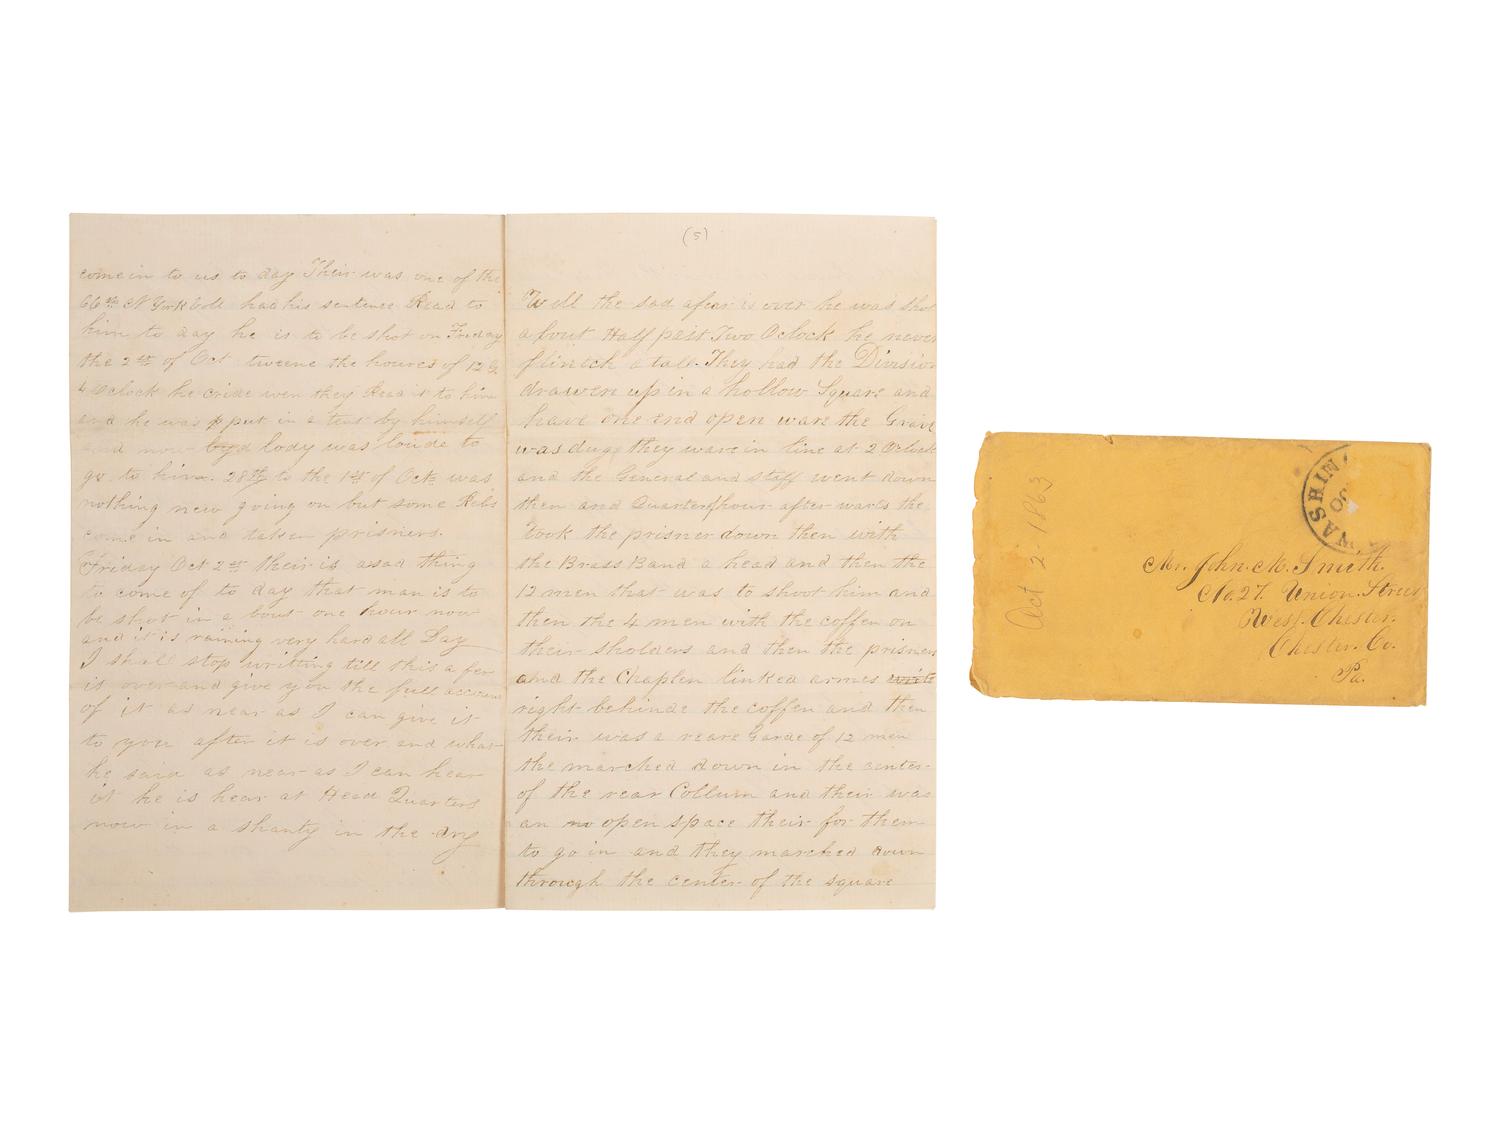 come in to us to day Their was one of the
66th N York Voll had his sentence Read to
him to day he is to be shot on Friday
the 2nd of Oct tweene the houres of 12 &
4 Oclock he cride wen they Read it to him
and he was put in a tent by himself
and now body was loude to
go to him. 28th to the 1st of Octs was
nothing new going on but some Rebs
come in and taken prisners.
Friday Oct 2nd their is a sad thing
to come of to day that man is to
be shot in a bout one hour now
and it is raining very hard all Day
I shall stop writting till this a fer
is over and give you the full account
of it as near as I can give it
to you after it is over and what
he said as near as I can hear
it he is hear at Head Quarters
now in a shanty in the dry
(5)
Well the sad afear is over he was shot
about Half past Two Oclock he never
flintch a tall. They had the Division
drawen up in a hollow Square and
have one end open ware the Grave
was dug they ware in line at 2 Oclock
and the General and staff went down
then and Quarter of hour after wards the
took the prisner down then with
the Brass Band a head and then the
12 men that was to shoot him and
then the 4 men with the coffen on
their sholders and then the prisner
and the Chaplen linked armes with
right behinde the coffen and then
their was a reare Garde of 12 men
the marched down in the center
of the rear Collum and their was
an no open space their for them
to go in and they marched down
through the center of the square
Oct 2-1863
WASHIN
OC
Mr. John. M. Smith.
No. 27. Union Street
West. Chester.
Chester. Co.
Pa.